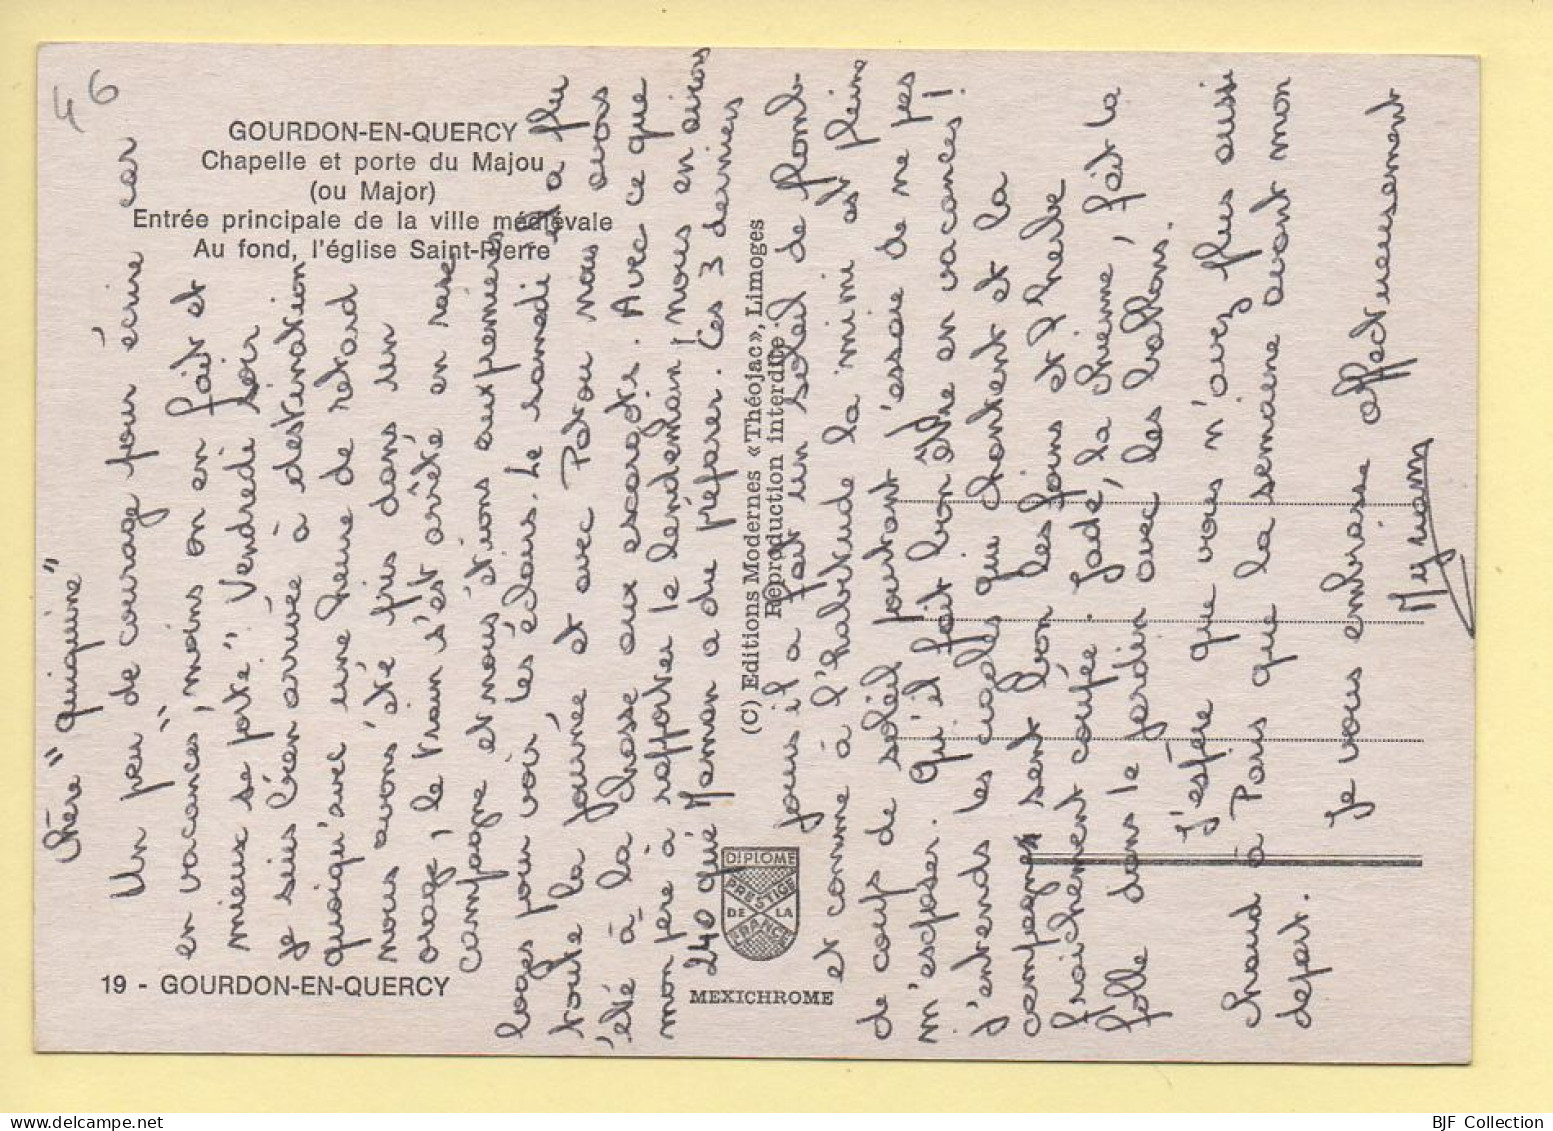 46
GOURDON-EN-QUERCY
Chapelle et porte du Majou
(ou Major)
Entrée principale de la ville médiévale
Au fond, l'église Saint-Pierre
19 - GOURDON-EN-QUERCY
(C) Editions Modernes «Théojac», Limoges
Reproduction interdite
DIPLOME
PRESTIGE
DE LA
FRANCE
MEXICHROME
Chère "quiquine"
Un peu de courage pour écrire car
en vacances, "moins on en fait et
mieux se porte". Vendredi soir
je suis bien arrivée à destination
quoiqu'avec une heure de retard
nous avons été pris dans un
orage, le train s'est arrêté en rase
campagne et nous étions aux premières
loges pour voir les éclairs. Le samedi il a plu
toute la journée et avec Patou nous avons
été à la chasse aux escargots. Avec ce que
mon père à rapporter le lendemain, nous en avions
240 que Maman a du préparer. Ces 3 derniers
jours il a fait un soleil de plomb
et comme à l'habitude la mimi est pleine
de coups de soleil pourtant j'essaie de ne pas
m'exposer. Qu'il fait bon être en vacances!
J'entends les cigales qui chantent et la
campagne sent bon les foins et l'herbe
fraîchement coupée. Jade, la chienne, fait la
folle dans le jardin avec les ballons.
J'espère que vous n'avez plus aussi
chaud à Paris que la semaine avant mon
départ.
Je vous embrasse affectueusement
Myriam
BJF Collection